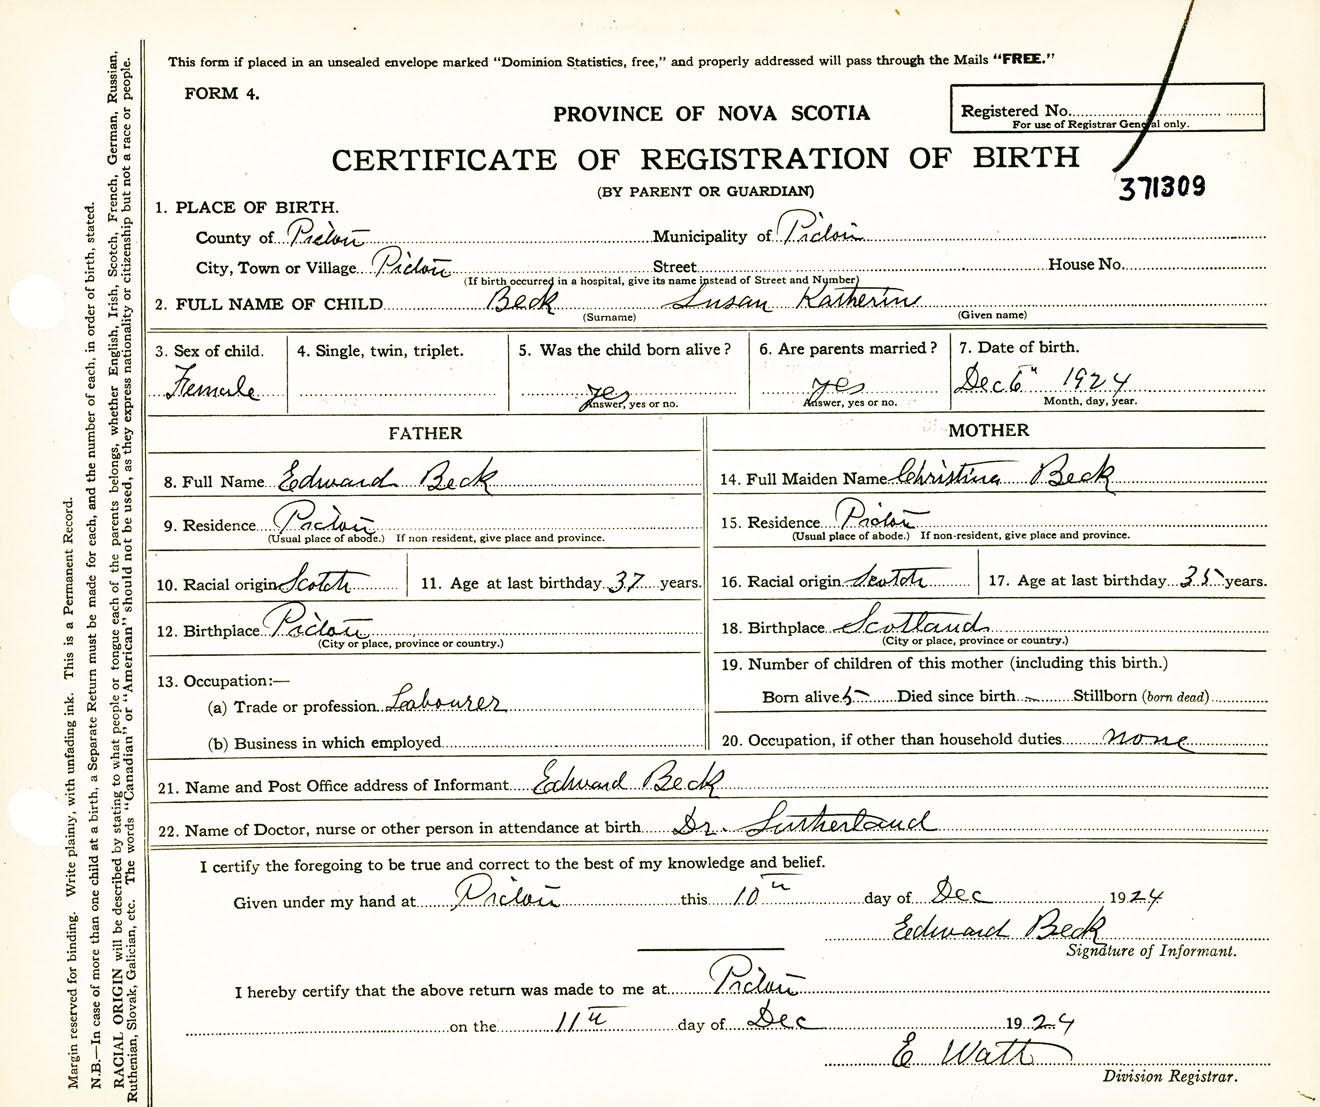 This form if placed in an unsealed envelope marked “Dominion Statistics, free,” and properly addressed will pass through the Mails “FREE.”
FORM 4.
PROVINCE OF NOVA SCOTIA
Registered No.
For use of Registrar General only.
CERTIFICATE OF REGISTRATION OF BIRTH
371309
(BY PARENT OR GUARDIAN)
1. PLACE OF BIRTH.
County of Pictou Municipality of Pictou
City, Town or Village Pictou Street House No.
(If birth occurred in a hospital, give its name instead of Street and Number)
2. FULL NAME OF CHILD Beck Susan Katherine
(Surname) (Given name)
3. Sex of child. 4. Single, twin, triplet. 5. Was the child born alive? 6. Are parents married? 7. Date of birth.
Female yes yes Dec 6th 1924
Answer, yes or no. Answer, yes or no. Month, day, year.
FATHER MOTHER
8. Full Name Edward Beck 14. Full Maiden Name Christina Beck
9. Residence Pictou 15. Residence Pictou
(Usual place of abode.) If non-resident, give place and province. (Usual place of abode.) If non-resident, give place and province.
10. Racial origin Scotch 11. Age at last birthday 37 years. 16. Racial origin Scotch 17. Age at last birthday 35 years.
12. Birthplace Pictou 18. Birthplace Scotland
(City or place, province or country.) (City or place, province or country.)
19. Number of children of this mother (including this birth.)
13. Occupation:—
(a) Trade or profession Labourer Born alive 5 Died since birth - Stillborn (born dead)
(b) Business in which employed 20. Occupation, if other than household duties none
21. Name and Post Office address of Informant Edward Beck
22. Name of Doctor, nurse or other person in attendance at birth Dr. Sutherland
I certify the foregoing to be true and correct to the best of my knowledge and belief.
Given under my hand at Pictou this 10th day of Dec 1924
Edward Beck
Signature of Informant.
I hereby certify that the above return was made to me at Pictou
on the 11th day of Dec 1924
E Watt
Division Registrar.
Margin reserved for binding. Write plainly, with unfading ink. This is a Permanent Record.
N.B.—In case of more than one child at a birth, a Separate Return must be made for each, and the number of each, in order of birth, stated.
RACIAL ORIGIN will be described by stating to what people or tongue each of the parents belongs, whether English, Irish, Scotch, French, German, Russian,
Ruthenian, Slovak, Galician, etc. The words “Canadian” or “American” should not be used, as they express nationality or citizenship but not a race or people.